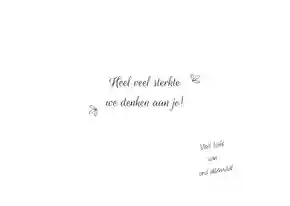 Heel veel sterkte
we denken aan je!
Veel liefs
van
ons allemaal